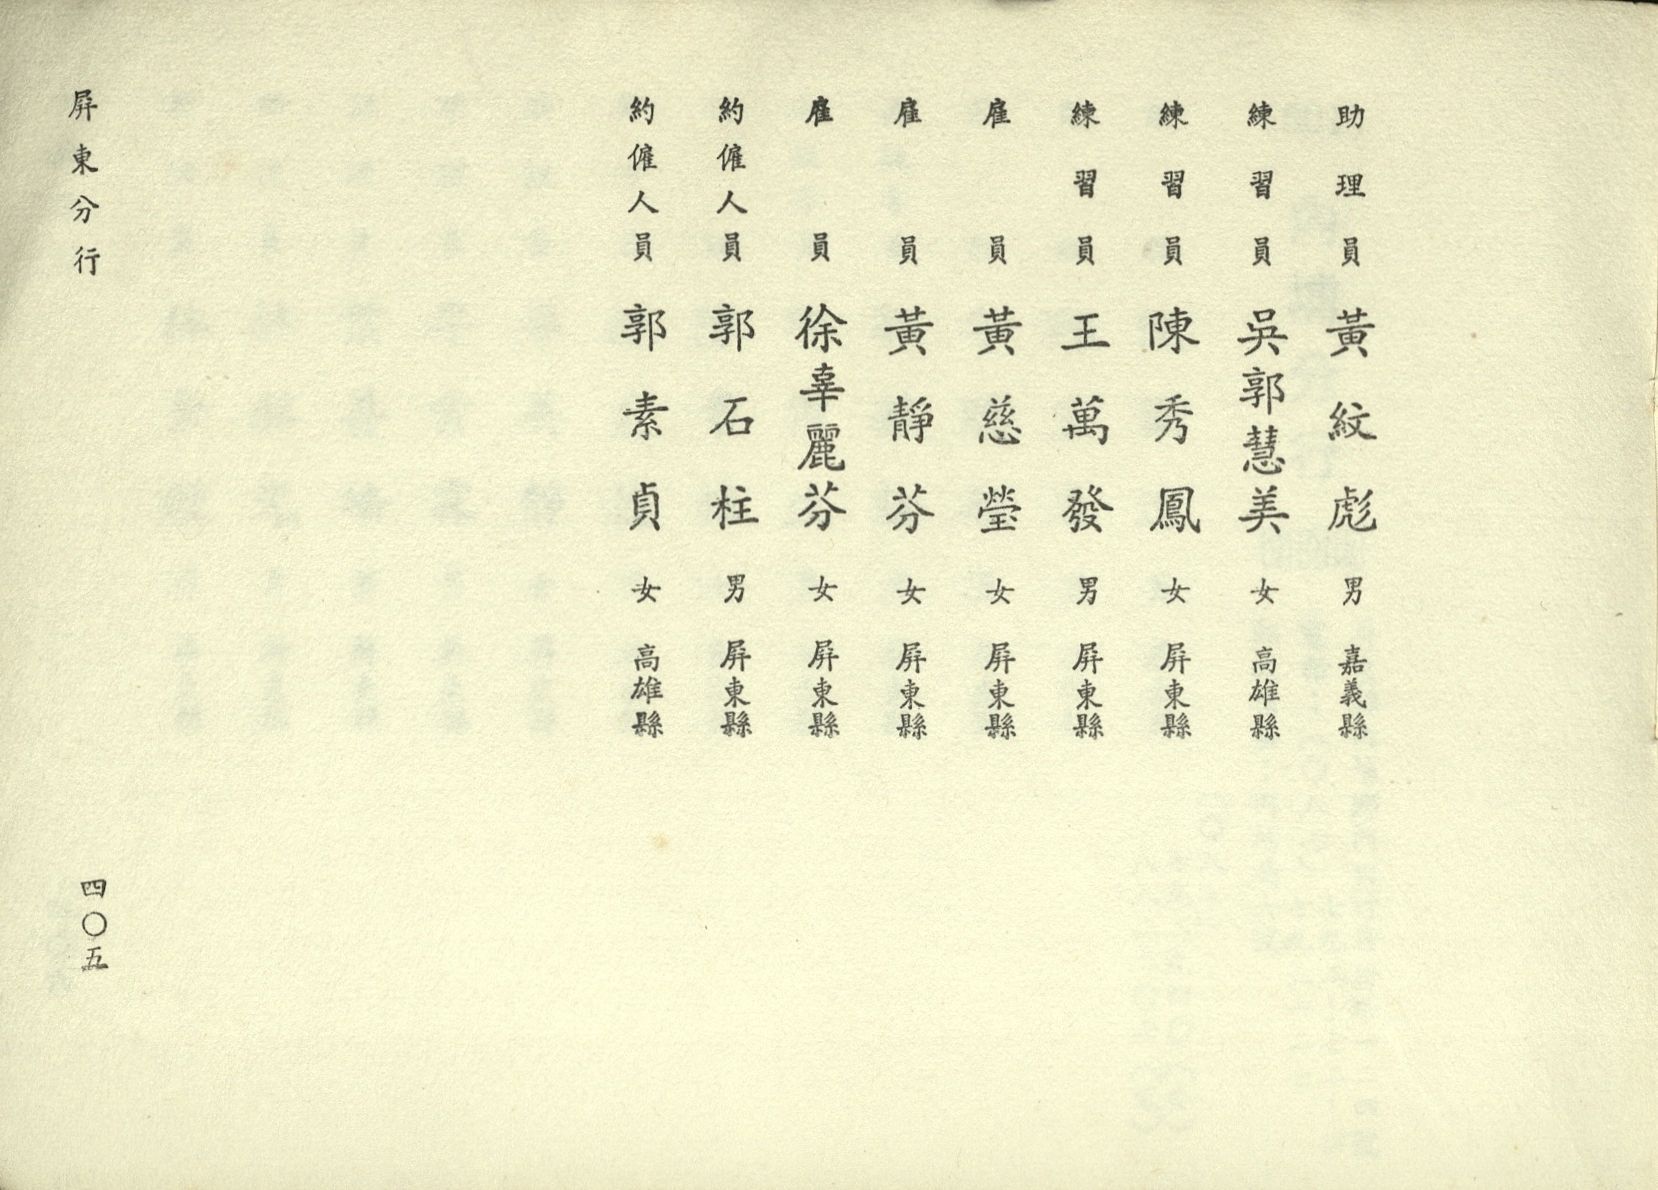 助理員 黃紋彪 男 嘉義縣
練習員 吳郭慧美 女 高雄縣
練習員 陳秀鳳 女 屏東縣
練習員 王萬發 男 屏東縣
雇員 黃慈瑩 女 屏東縣
雇員 黃靜芬 女 屏東縣
雇員 徐辜麗芬 女 屏東縣
約僱人員 郭石柱 男 屏東縣
約僱人員 郭素貞 女 高雄縣
屏東分行
四〇五